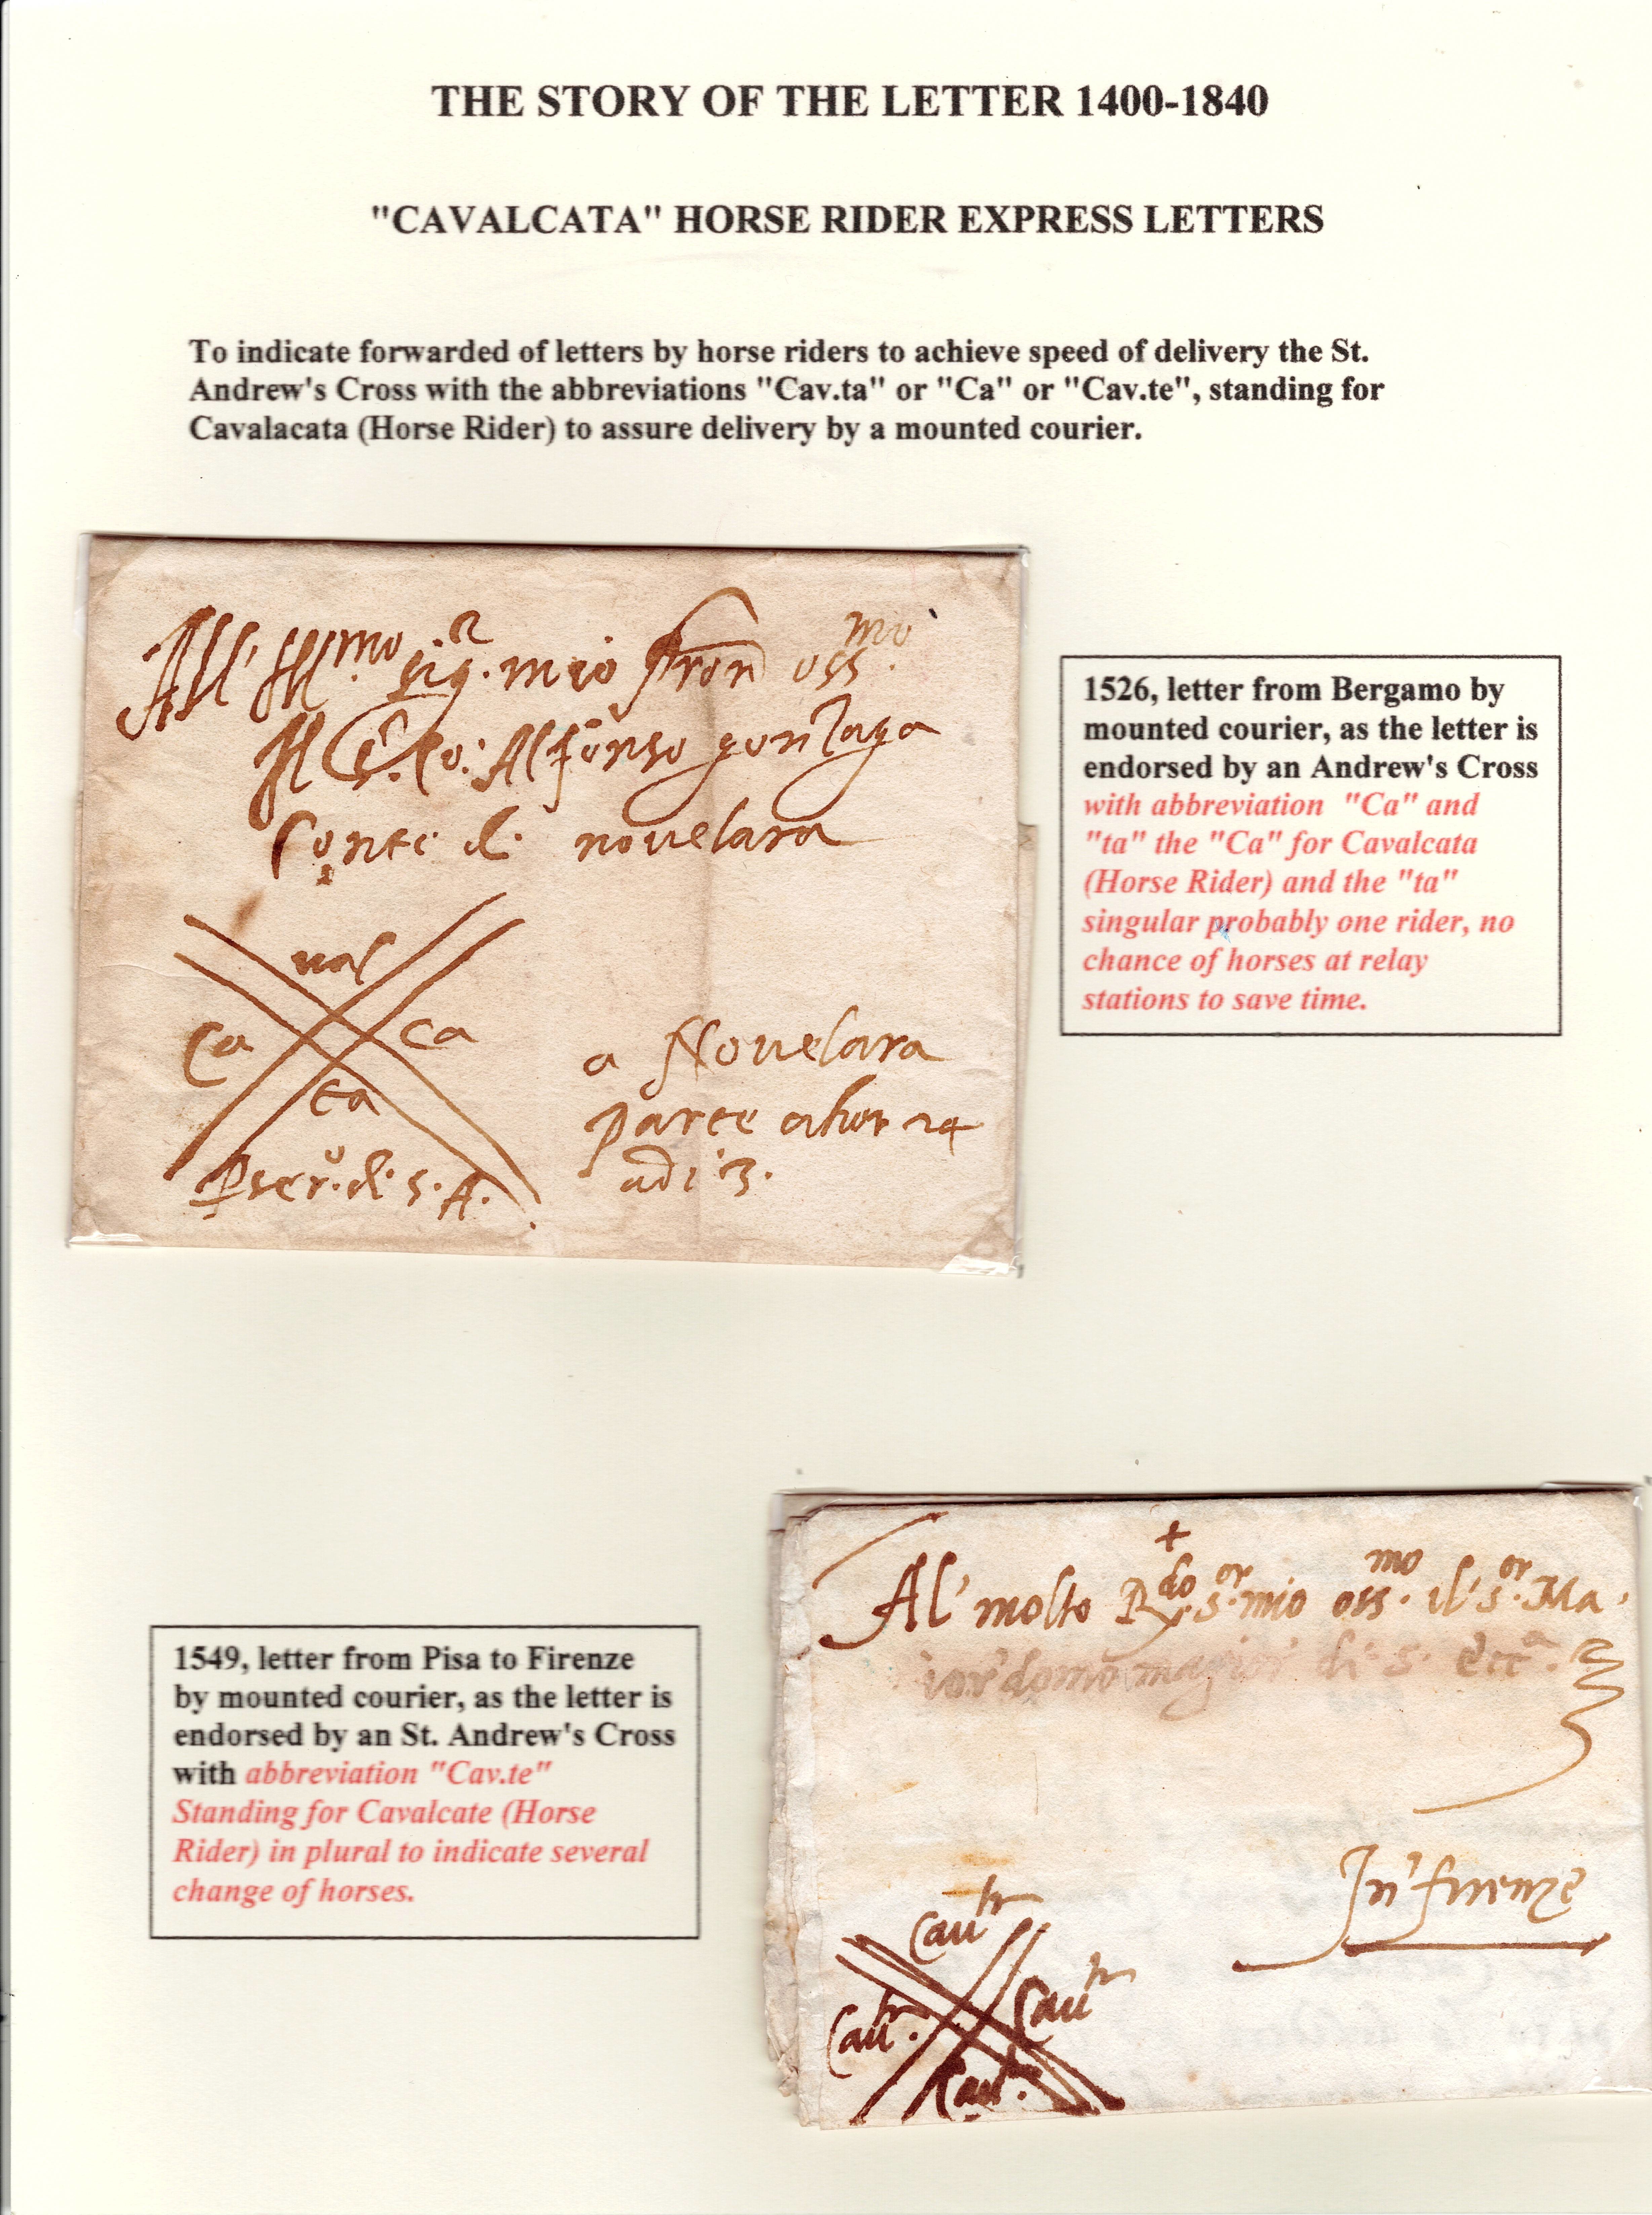 THE STORY OF THE LETTER 1400-1840
"CAVALCATA" HORSE RIDER EXPRESS LETTERS
To indicate forwarded of letters by horse riders to achieve speed of delivery the St.
Andrew's Cross with the abbreviations "Cav.ta" or "Ca" or "Cav.te", standing for
Cavalacata (Horse Rider) to assure delivery by a mounted courier.
All' Ill.mo sig.r mio pron oss.mo
Il Alfonso gonzaga
Conte di novelara
val
Ca ca
ta
a Novelara
parte
adi 3.
1526, letter from Bergamo by
mounted courier, as the letter is
endorsed by an Andrew's Cross
with abbreviation "Ca" and
"ta" the "Ca" for Cavalcata
(Horse Rider) and the "ta"
singular probably one rider, no
chance of horses at relay
stations to save time.
1549, letter from Pisa to Firenze
by mounted courier, as the letter is
endorsed by an St. Andrew's Cross
with abbreviation "Cav.te"
Standing for Cavalcate (Horse
Rider) in plural to indicate several
change of horses.
Al' molto R.do s.or mio oss.mo il s.or Ma
iordomo di s. ecc.a
In firenze
Cau.te
Cau.te
Cau.te
Cau.te